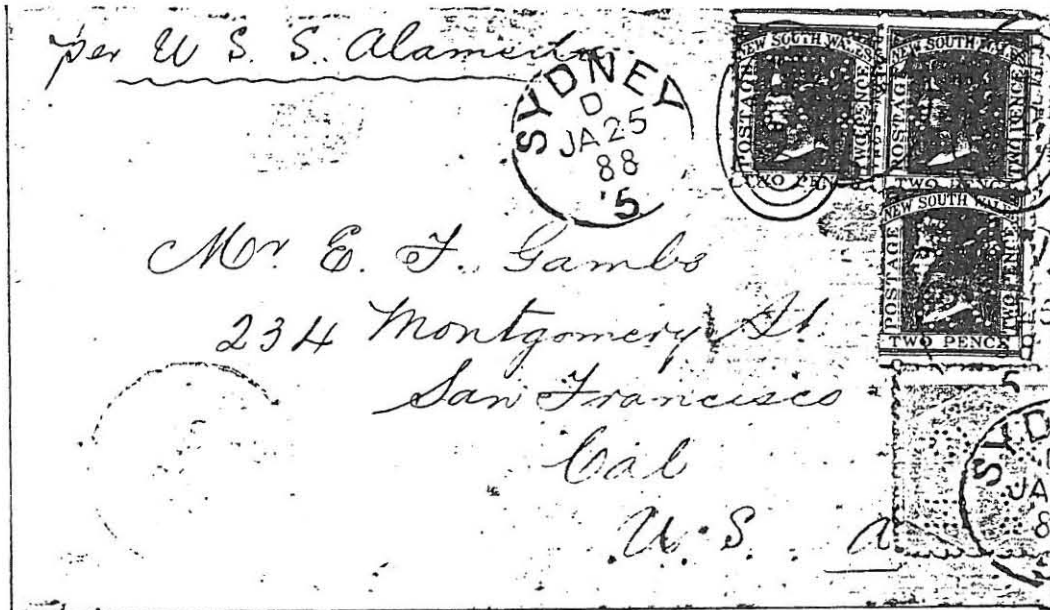 per U S. S. Alameda
SYDNEY
D
JA 25
88
5
NEW SOUTH WALES
POSTAGE
TWO PENCE
TWO PENCE
NEW SOUTH WALES
POSTAGE
TWO PENCE
TWO PENCE
NEW SOUTH WALES
POSTAGE
TWO PENCE
TWO PENCE
Mr. E. F. Gambs
234 Montgomery St.
San Francisco
Cal
U. S. A
5
SYD
JA
8